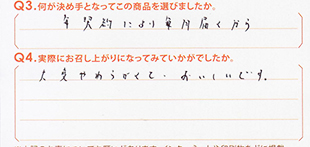 Q3.何が決め手となってこの商品を選びましたか。
年契約により毎月届くから
Q4.実際にお召し上がりになってみていかがでしたか。
大変やわらかくて、おいしいです。